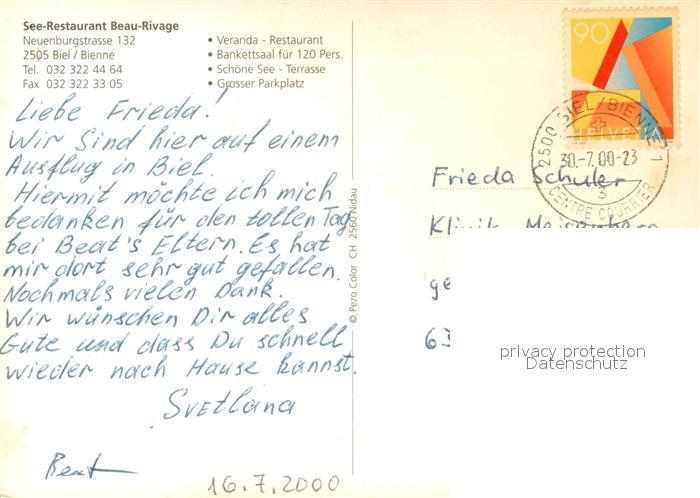 See-Restaurant Beau-Rivage
Neuenburgstrasse 132
2505 Biel / Bienne
Tel. 032 322 44 64
Fax 032 322 33 05
• Veranda - Restaurant
• Bankettsaal für 120 Pers.
• Schöne See - Terrasse
• Grosser Parkplatz
Liebe Frieda!
Wir Sind hier auf einem
Ausflug in Biel.
Hiermit möchte ich mich
bedanken für den tollen Tag
bei Beat's Eltern. Es hat
mir dort sehr gut gefallen.
Nochmals vielen Dank.
Wir wünschen Dir alles
Gute und dass Du schnell
wieder nach Hause kannst.
Svetlana
Beat
16.7.2000
© Pezo Color CH 2560 Nidau
90
HELVETIA
2500 BIEL/BIENNE 1
30.-7.00-23
S
CENTRE COURRIER
Frieda Schuler
Klinik
ge
63
privacy protection
Datenschutz